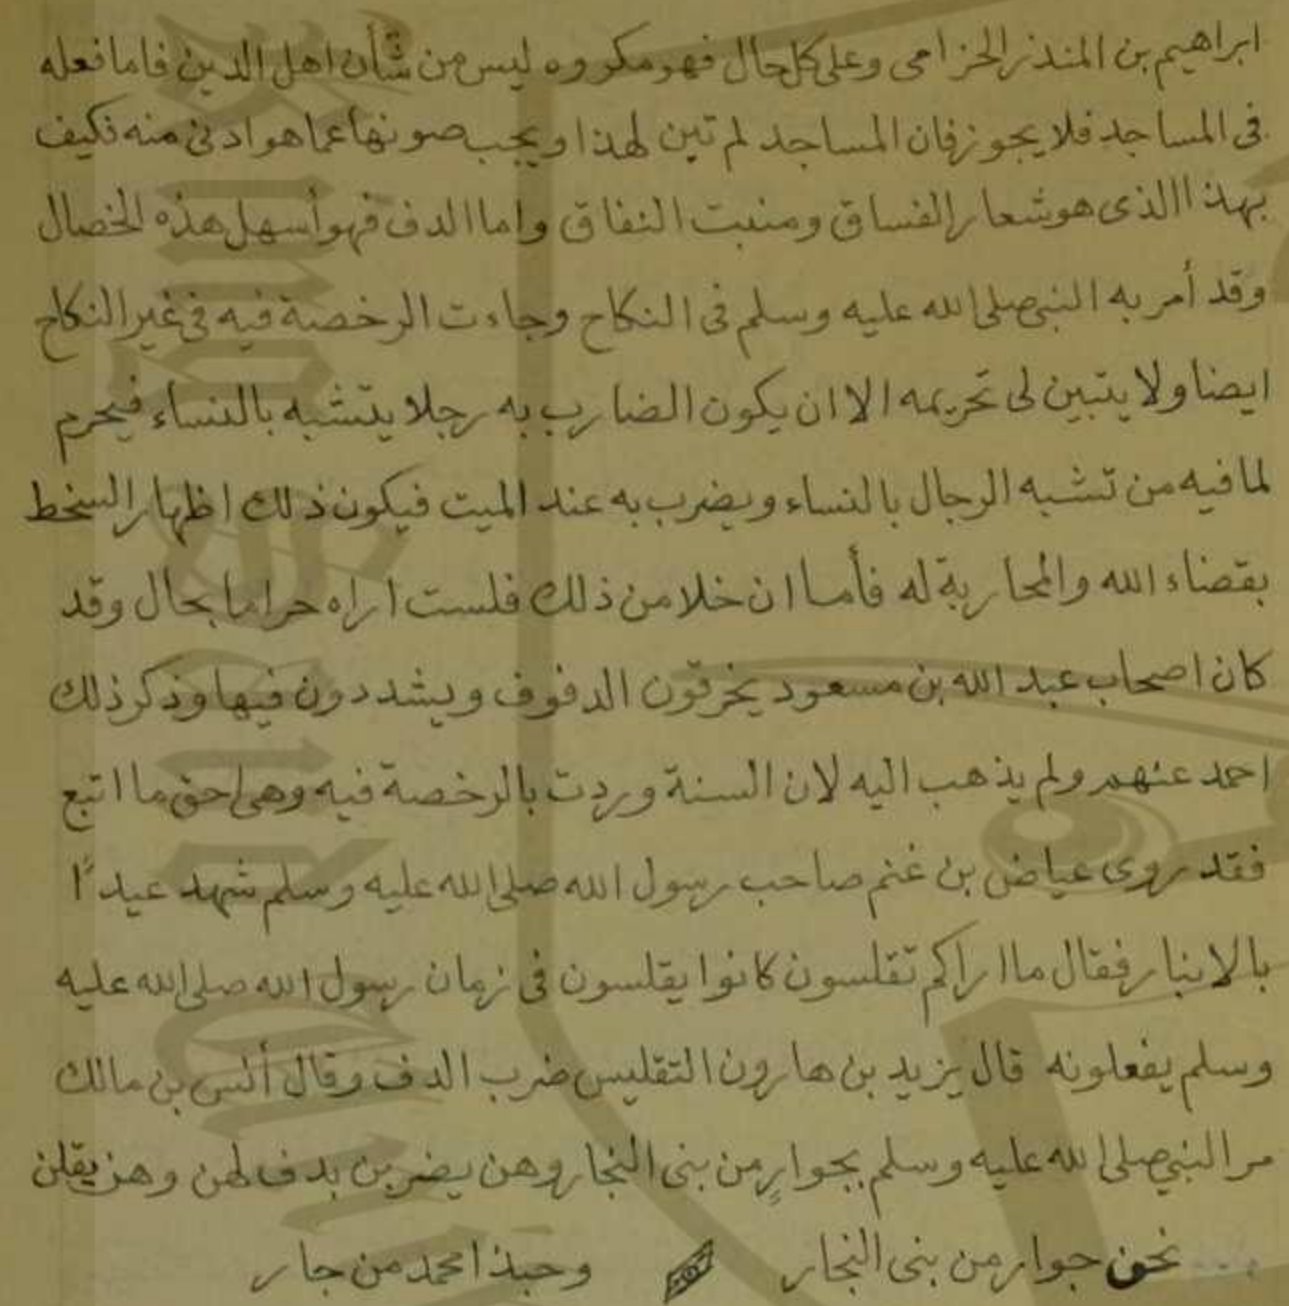 ابراهيم بن المنذر الحزامى وعلى كل حال فهو مكروه ليس من شأن اهل الدين فامافعله
فى المساجد فلايجوز فان المساجد لم تبن لهذا ويجب صونها عما هو ادنى منه فكيف
بهذاالذى هو شعار الفساق ومنبت النفاق واماالدف فهو أسهل هذه الخصال
وقد أمر به النبى صلى الله عليه وسلم فى النكاح وجاءت الرخصة فيه فى غير النكاح
ايضا ولا يتبين لى تحريمه الا ان يكون الضارب به رجلا يتشبه بالنساء فيحرم
لمافيه من تشبه الرجال بالنساء ويضرب به عند الميت فيكون ذلك اظهار السخط
بقضاء الله والمحاربة له فأما ان خلا من ذلك فلست اراه حراما بحال وقد
كان اصحاب عبد الله بن مسعود يخرقون الدفوف ويشددون فيها وذكر ذلك
احمد عنهم ولم يذهب اليه لان السنة وردت بالرخصة فيه وهى احق ما اتبع
فقد روى عياض بن غنم صاحب رسول الله صلى الله عليه وسلم شهد عيدًا
بالانبار فقال ما اراكم تقلسون كانوا يقلسون فى زمان رسول الله صلى الله عليه
وسلم يفعلونه قال يزيد بن هارون التقليس ضرب الدف وقال أنس بن مالك
مر النبي صلى الله عليه وسلم بجوارٍ من بنى النجار وهن يضربن بدف لهن وهن يقلن
نحن جوار من بنى النجار وحبذا محمد من جار